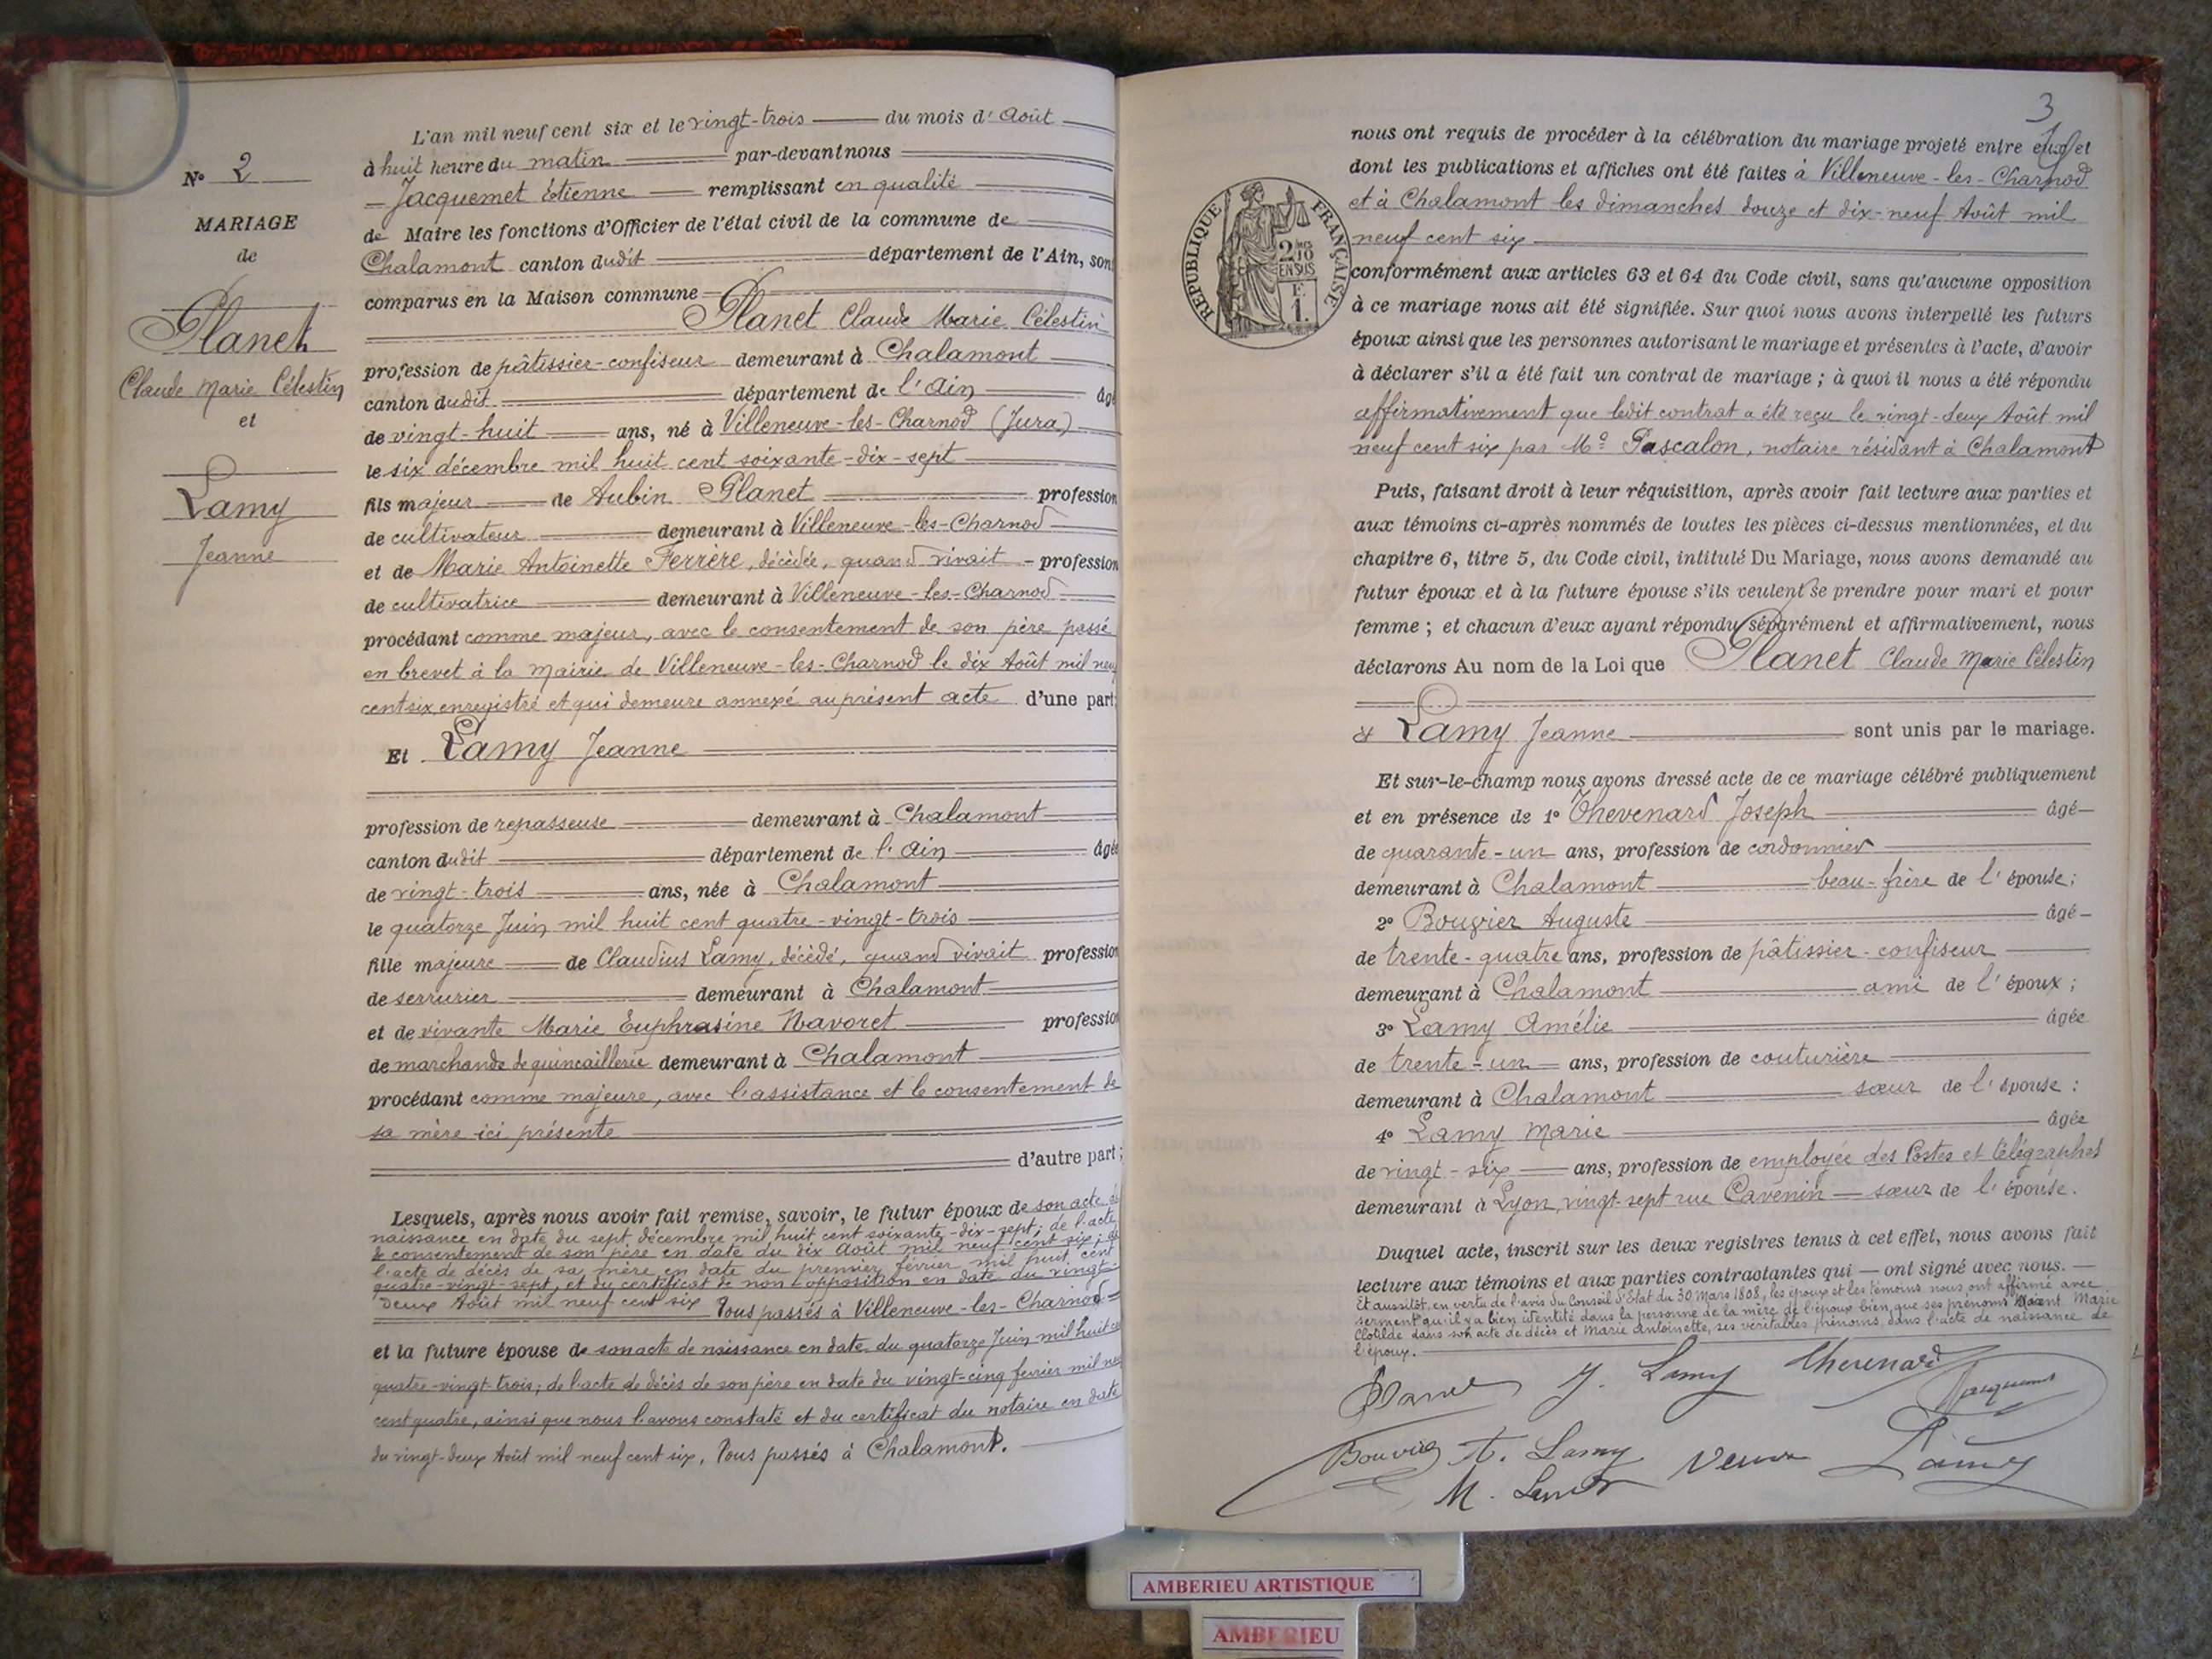 N° 2
MARIAGE
de
Planet
Claude Marie Célestin
et
Lamy
Jeanne
L'an mil neuf cent six et le vingt-trois du mois d'Août
à huit heure du matin par-devant nous
Jacquemet Etienne remplissant en qualité
de Maire les fonctions d'Officier de l'état civil de la commune de
Chalamont canton dudit département de l'Ain, son
comparus en la Maison commune
Planet Claude Marie Célestin
profession de pâtissier-confiseur demeurant à Chalamont
canton dudit département de l'Ain âgé
de vingt-huit ans, né à Villeneuve-les-Charnod (Jura)
le six décembre mil huit cent soixante-dix-sept
fils majeur de Aubin Planet profession
de cultivateur demeurant à Villeneuve-les-Charnod
et de Marie Antoinette Ferrère, décédée, quand vivait profession
de cultivatrice demeurant à Villeneuve-les-Charnod
procédant comme majeur, avec le consentement de son père passé
en brevet à la Mairie de Villeneuve-les-Charnod le dix Août mil neuf
cent six, enregistré et qui demeure annexé au présent acte d'une part;
Et Lamy Jeanne
profession de repasseuse demeurant à Chalamont
canton dudit département de l'Ain âgée
de vingt-trois ans, née à Chalamont
le quatorze Juin mil huit cent quatre-vingt-trois
fille majeure de Claudius Lamy, décédé, quand vivait profession
de serrurier demeurant à Chalamont
et de vivante Marie Euphrasine Navoret profession
de marchande de quincaillerie demeurant à Chalamont
procédant comme majeure, avec l'assistance et le consentement de
sa mère ici présente
d'autre part;
Lesquels, après nous avoir fait remise, savoir, le futur époux de son acte de
naissance en date du sept décembre mil huit cent soixante-dix-sept; de l'acte
de consentement de son père en date du dix Août mil neuf cent six; de
l'acte de décès de sa mère en date du premier février mil huit cent
quatre-vingt-sept, et du certificat de non opposition en date du vingt-
deux Août mil neuf cent six Tous passés à Villeneuve-les-Charnod
et la future épouse de son acte de naissance en date du quatorze Juin mil huit cent
quatre-vingt-trois; de l'acte de décès de son père en date du vingt-cinq février mil neuf
cent quatre, ainsi que nous l'avons constaté et du certificat du notaire en date
du vingt-deux Août mil neuf cent six, Tous passés à Chalamont.
3
nous ont requis de procéder à la célébration du mariage projeté entre eux et
dont les publications et affiches ont été faites à Villeneuve-les-Charnod
et à Chalamont les dimanches douze et dix-neuf Août mil
neuf cent six
RÉPUBLIQUE FRANÇAISE
2/10 EN SUS
F.
1.
conformément aux articles 63 et 64 du Code civil, sans qu'aucune opposition
à ce mariage nous ait été signifiée. Sur quoi nous avons interpellé les futurs
époux ainsi que les personnes autorisant le mariage et présentes à l'acte, d'avoir
à déclarer s'il a été fait un contrat de mariage; à quoi il nous a été répondu
affirmativement que ledit contrat a été reçu le vingt-deux Août mil
neuf cent six par Me Pascalon, notaire résidant à Chalamont
Puis, faisant droit à leur réquisition, après avoir fait lecture aux parties et
aux témoins ci-après nommés de toutes les pièces ci-dessus mentionnées, et du
chapitre 6, titre 5, du Code civil, intitulé Du Mariage, nous avons demandé au
futur époux et à la future épouse s'ils veulent se prendre pour mari et pour
femme; et chacun d'eux ayant répondu séparément et affirmativement, nous
déclarons Au nom de la Loi que Planet Claude Marie Célestin
& Lamy Jeanne sont unis par le mariage.
Et sur-le-champ nous avons dressé acte de ce mariage célébré publiquement
et en présence de 1° Thevenard Joseph âgé
de quarante-un ans, profession de cordonnier
demeurant à Chalamont beau-frère de l'épouse;
2° Bouvier Auguste âgé
de trente-quatre ans, profession de pâtissier-confiseur
demeurant à Chalamont ami de l'époux;
3° Lamy Amélie âgée
de trente-un ans, profession de couturière
demeurant à Chalamont sœur de l'épouse:
4° Lamy Marie âgée
de vingt-six ans, profession de employée des Postes et télégraphes
demeurant à Lyon, vingt-sept rue Cavenin sœur de l'épouse.
Duquel acte, inscrit sur les deux registres tenus à cet effet, nous avons fait
lecture aux témoins et aux parties contractantes qui — ont signé avec nous. —
Et aussitôt, en vertu de l'avis du Conseil d'Etat du 30 Mars 1808, les époux et les témoins nous ont affirmé avec
serment qu'il y a bien identité dans la personne de la mère de l'époux bien que ses prénoms soient Marie
Clotilde dans son acte de décès et Marie Antoinette, ses véritables prénoms, dans l'acte de naissance de
l'époux.
Planet J. Lamy Thevenard Jacquemet
Bouvier A. Lamy Veuve Lamy
M. Lamy
AMBERIEU ARTISTIQUE
AMBERIEU